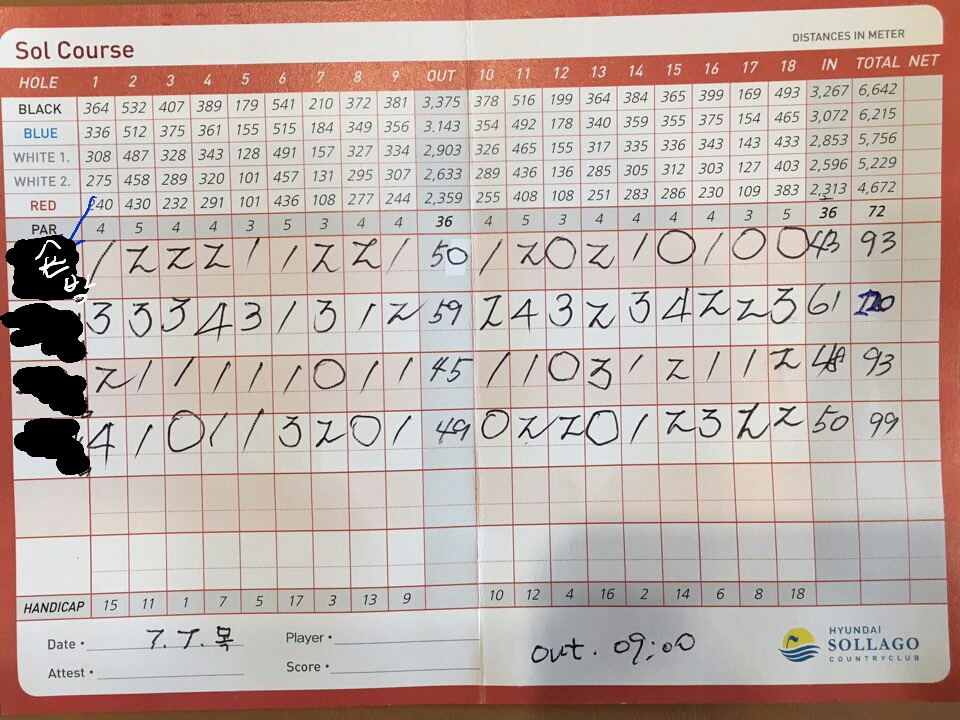 Sol Course
DISTANCES IN METER
HOLE 1 2 3 4 5 6 7 8 9 OUT 10 11 12 13 14 15 16 17 18 IN TOTAL NET
BLACK 364 532 407 389 179 541 210 372 381 3,375 378 516 199 364 384 365 399 169 493 3,267 6,642
BLUE 336 512 375 361 155 515 184 349 356 3.143 354 492 178 340 359 355 375 154 465 3,072 6,215
WHITE 1. 308 487 328 343 128 491 157 327 334 2,903 326 465 155 317 335 336 343 143 433 2,853 5,756
WHITE 2. 275 458 289 320 101 457 131 295 307 2,633 289 436 136 285 305 312 303 127 403 2,596 5,229
RED 240 430 232 291 101 436 108 277 244 2,359 255 408 108 251 283 286 230 109 383 2,313 4,672
PAR 4 5 4 4 3 5 3 4 4 36 4 5 3 4 4 4 4 3 5 36 72
1 2 2 2 1 1 2 2 1 50 1 2 0 2 1 0 1 0 0 43 93
3 3 3 4 3 1 3 1 2 59 2 4 3 2 3 4 2 2 3 61 120
2 1 1 1 1 1 0 1 1 45 1 1 0 3 1 2 1 1 2 48 93
4 1 0 1 1 3 2 0 1 49 0 2 2 0 1 2 3 2 2 50 99
HANDICAP 15 11 1 7 5 17 3 13 9 10 12 4 16 2 14 6 8 18
Date • 7.7.목 Player •
Attest • Score •
out. 09:00
HYUNDAI
SOLLAGO
COUNTRYCLUB